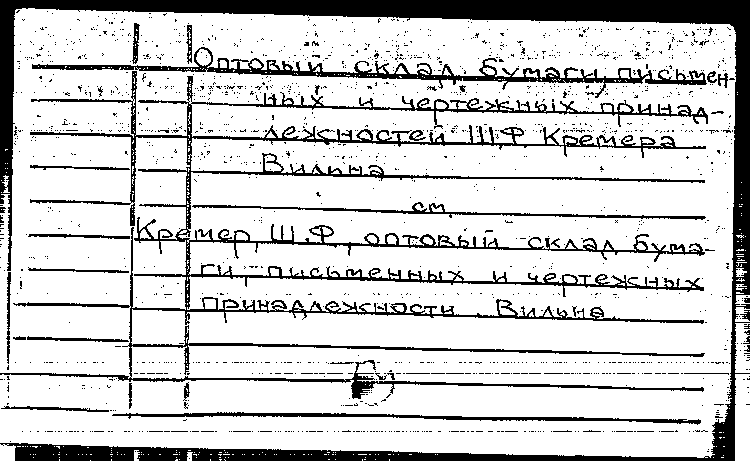 Оптовый склад бумаги, письмен-
ных и чертежных принад-
лежностей Ш.Ф. Кремера
Вильна.
см.
Кремер, Ш.Ф., оптовый склад бума-
ги, письменных и чертежных
принадлежности. Вильна.